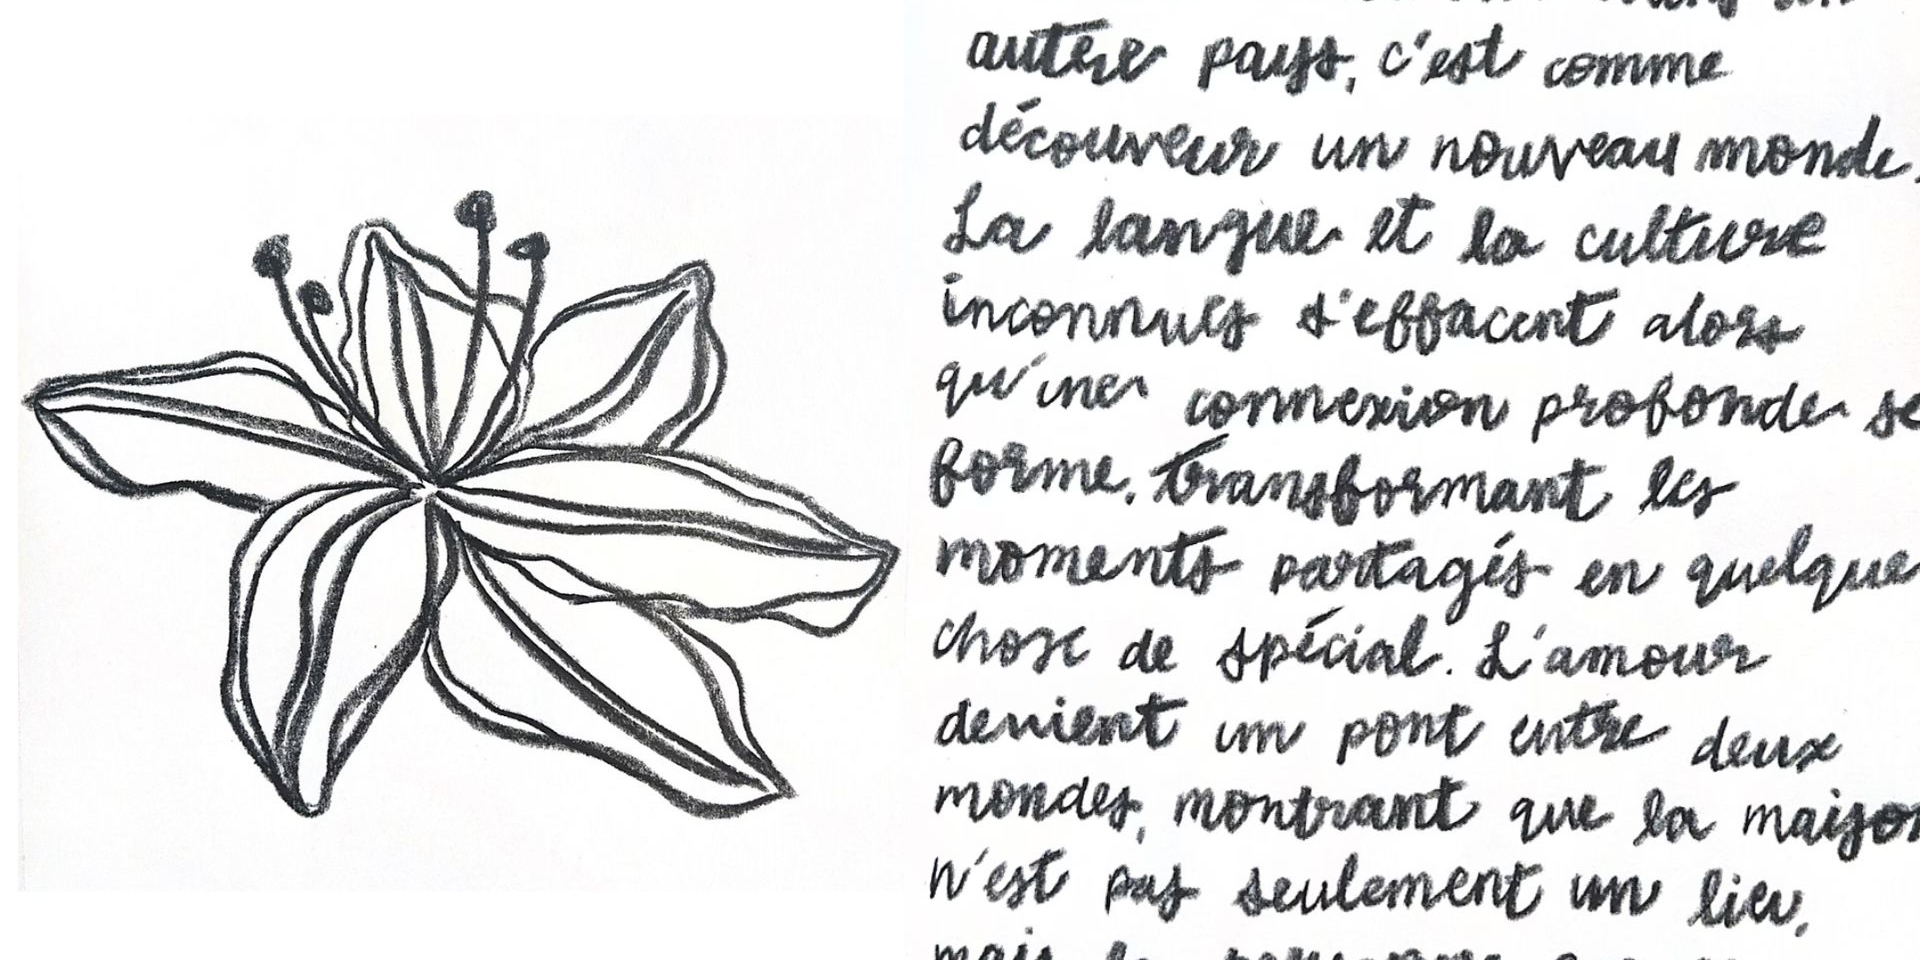 autre pays, c'est comme
découveur un nouveau monde.
La langue et la culture
inconnues s'effacent alors
qu'une connexion profonde se
forme, transformant les
moments partagés en quelque
chose de spécial. L'amour
devient un pont entre deux
mondes, montrant que la maison
n'est pas seulement un lieu,
mais la